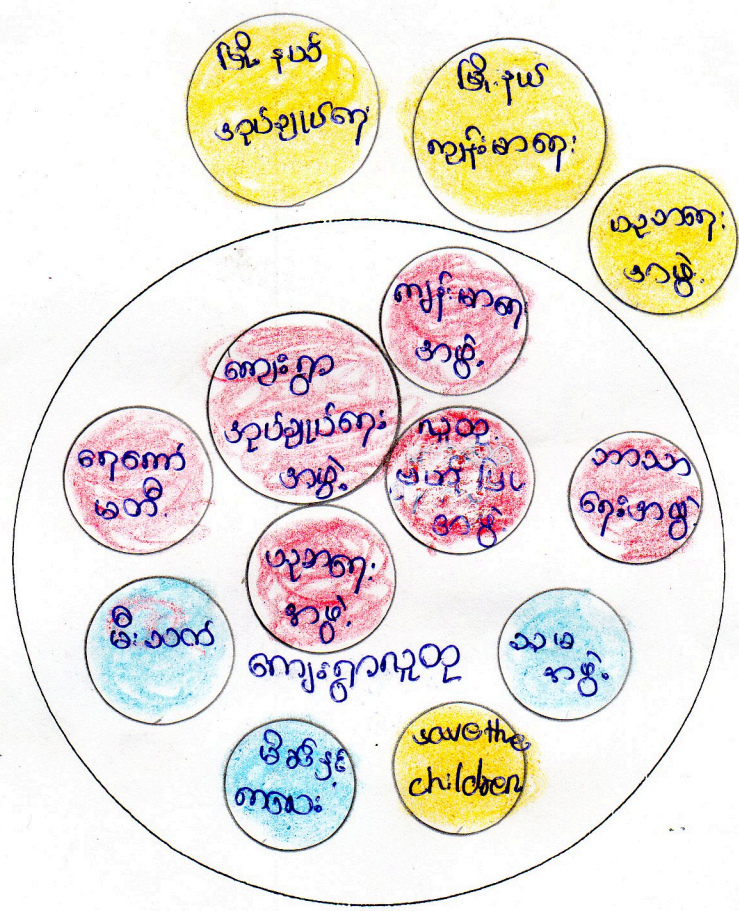 မြို့နယ်
အုပ်ချုပ်ရေး
မြို့နယ်
ကျန်းမာရေး
ပညာရေး
အဖွဲ့
ကျန်းမာရေး
အဖွဲ့
ကျေးရွာ
အုပ်ချုပ်ရေး
အဖွဲ့
လူထု
အဖွဲ့
ရေကော်
မတီ
ဘာသာ
ရေးအဖွဲ့
ပညာရေး
အဖွဲ့
မီးသတ်
ကျေးရွာလူထု
သမ
အဖွဲ့
မိခင်နှင့်
ကလေး
save the
children